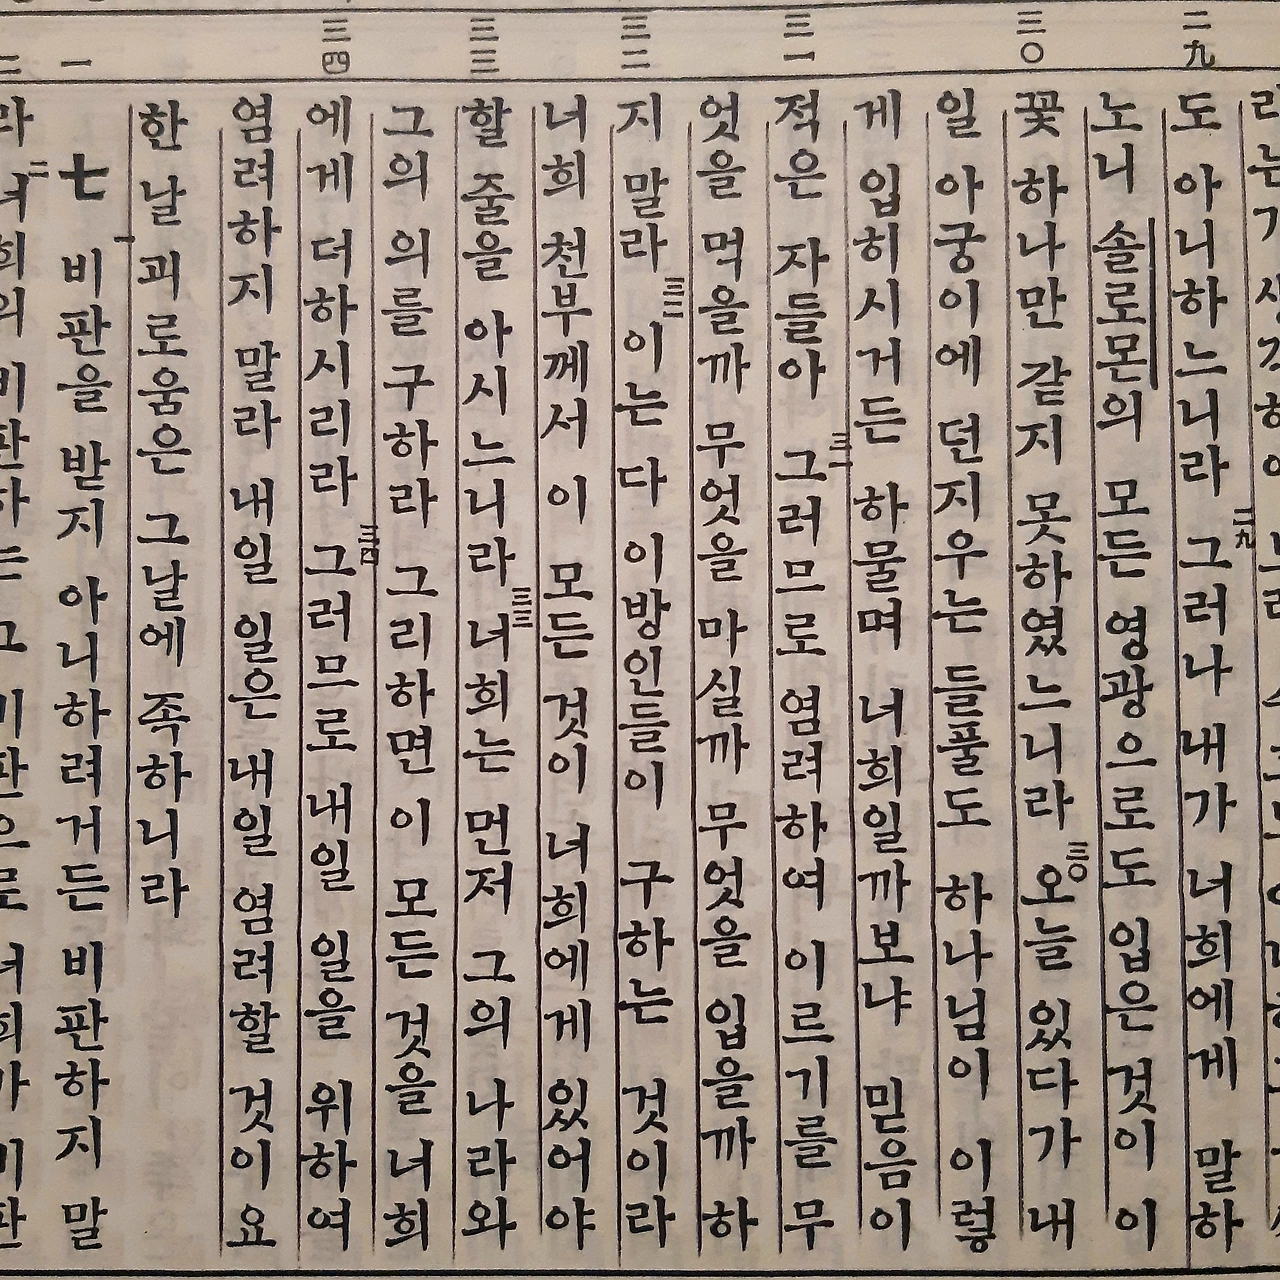 二九 三〇 三一 三二 三三 三四 一 二
도 아니하느니라 二九 그러나 내가 너희에게 말하
노니 솔로몬의 모든 영광으로도 입은 것이 이
꽃 하나만 같지 못하였느니라 三〇 오늘 있다가 내
일 아궁이에 던지우는 들풀도 하나님이 이렇
게 입히시거든 하물며 너희일까보냐 믿음이
적은 자들아 三一 그러므로 염려하여 이르기를 무
엇을 먹을까 무엇을 마실까 무엇을 입을까 하
지 말라 三二 이는 다 이방인들이 구하는 것이라
너희 천부께서 이 모든 것이 너희에게 있어야
할 줄을 아시느니라 三三 너희는 먼저 그의 나라와
그의 의를 구하라 그리하면 이 모든 것을 너희
에게 더하시리라 三四 그러므로 내일 일을 위하여
염려하지 말라 내일 일은 내일 염려할 것이요
한 날 괴로움은 그날에 족하니라
七 一 비판을 받지 아니하려거든 비판하지 말
라 二 너희의 비판하는 그 비판으로 너희가 비판